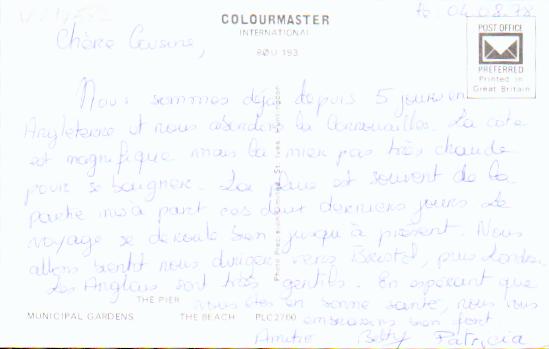 le 04.08.78
COLOURMASTER
INTERNATIONAL
BOU 193
POST OFFICE
PREFERRED
Printed in
Great Britain
Chère Cousine,
Nous sommes déjà depuis 5 jours en
Angleterre et nous la Cornouailles. La cote
est magnifique mais la mer pas très chaude
pour se baigner. La pluie est souvent de la
partie mais à part ces deux derniers jours le
voyage se deroule bien jusqu'à présent. Nous
allons bientôt nous diriger vers Bristol, puis Londres
Les Anglais sont très gentils. En espérant que
vous êtes en bonne santé, nous vous
embrassons bien fort
Betty Patricia
THE PIER
MUNICIPAL GARDENS THE BEACH PLC2700